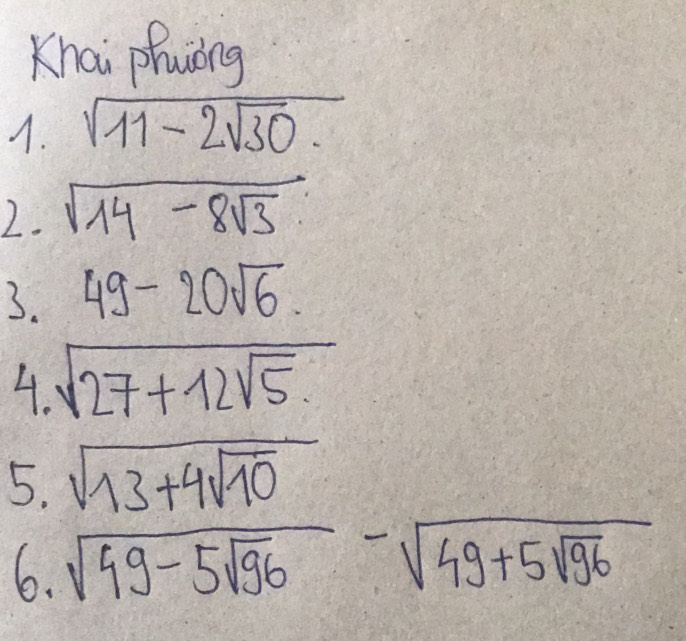 Khai phương
1. √(11 - 2√30).
2. √(14 - 8√3)
3. 49 - 20√6.
4. √(27 + 12√5).
5. √(13 + 4√10)
6. √(49 - 5√96) - √(49 + 5√96)